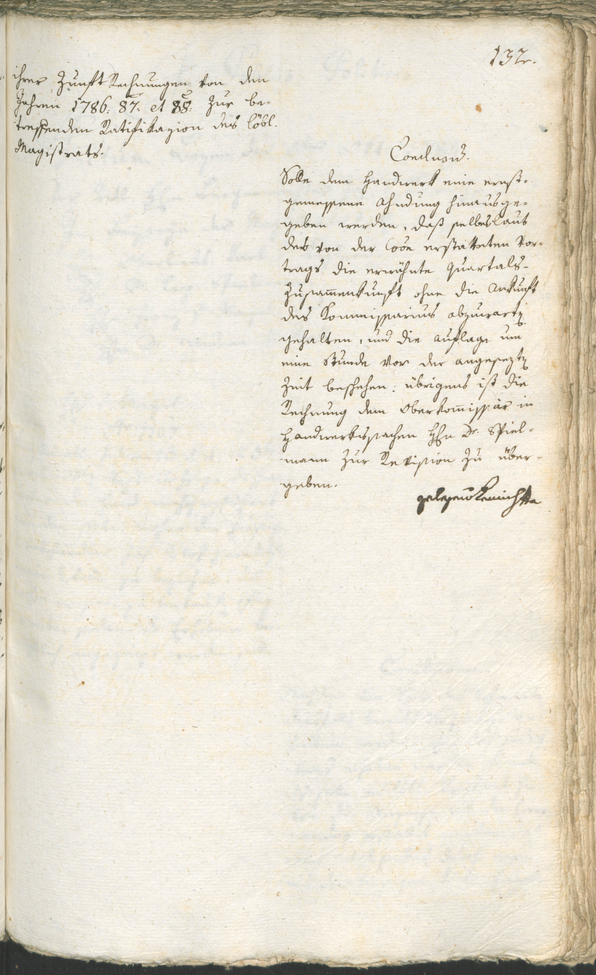 132.
ihrer Zunft Rechnungen von den
Jahren 1786. 87. et 88. zur be-
treffenden Ratifikazion des löbl.
Magistrats.
Conclusum.
Solle dem Handwerk eine ernst-
gemessene Ahndung hinausge-
geben werden, daß selbes laut
des von der erstatteten Vor-
trags die erwähnte Quartals-
Zusammenkunft ohne die Ankunft
des Kommissarius abzuwarten
gehalten, und die Auflage um
eine Stunde vor der angesezten
Zeit beschehen: übrigens ist die
Rechnung dem Oberkommissär in
Handwerkssachen Hhn Dr. Spiel-
mann zur Revision zu über-
geben.